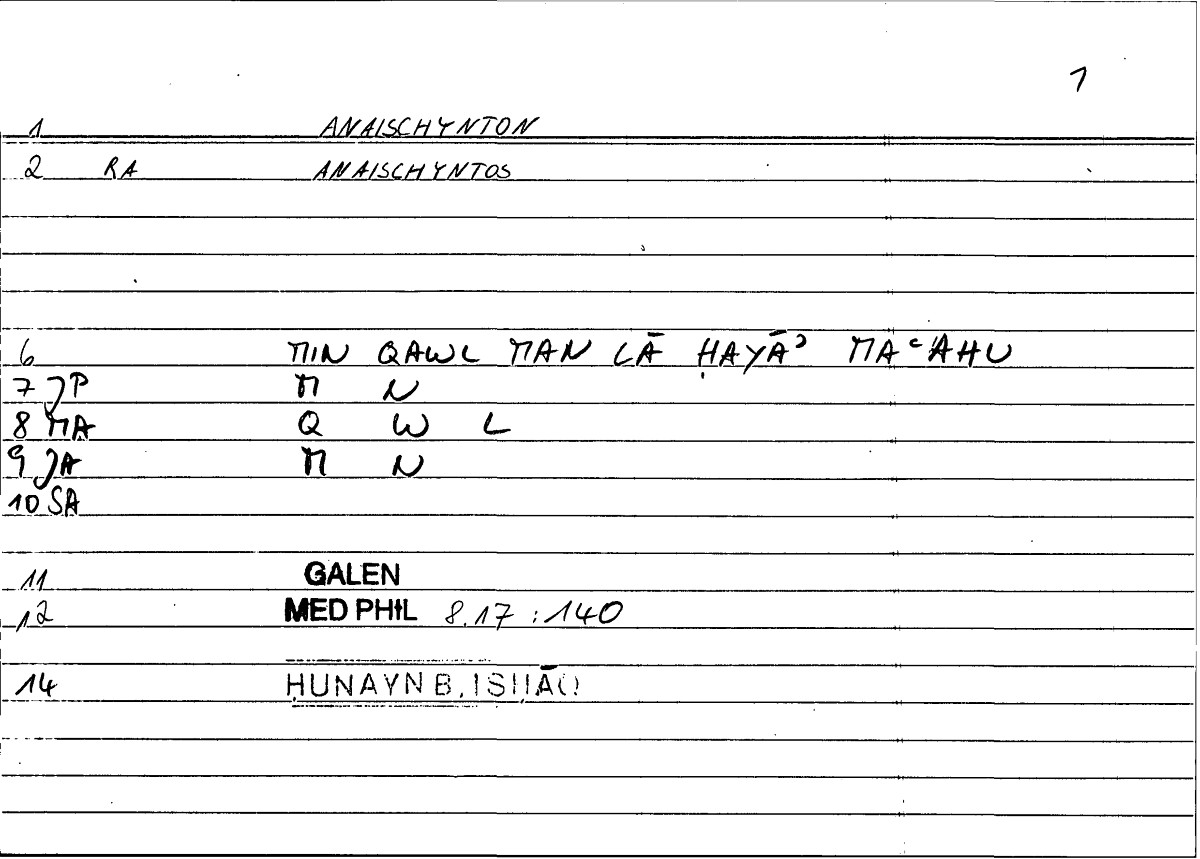 1
1 ANAISCHYNTON
2 RA ANAISCHYNTOS
6 MIN QAWL MAN LĀ ḤAYĀʾ MAʿAHU
7 JP M N
8 MA Q W L
9 JA M N
10 SA
11 GALEN
12 MED PHIL 8.17 : 140
14 ḤUNAYN B. ISḤĀQ